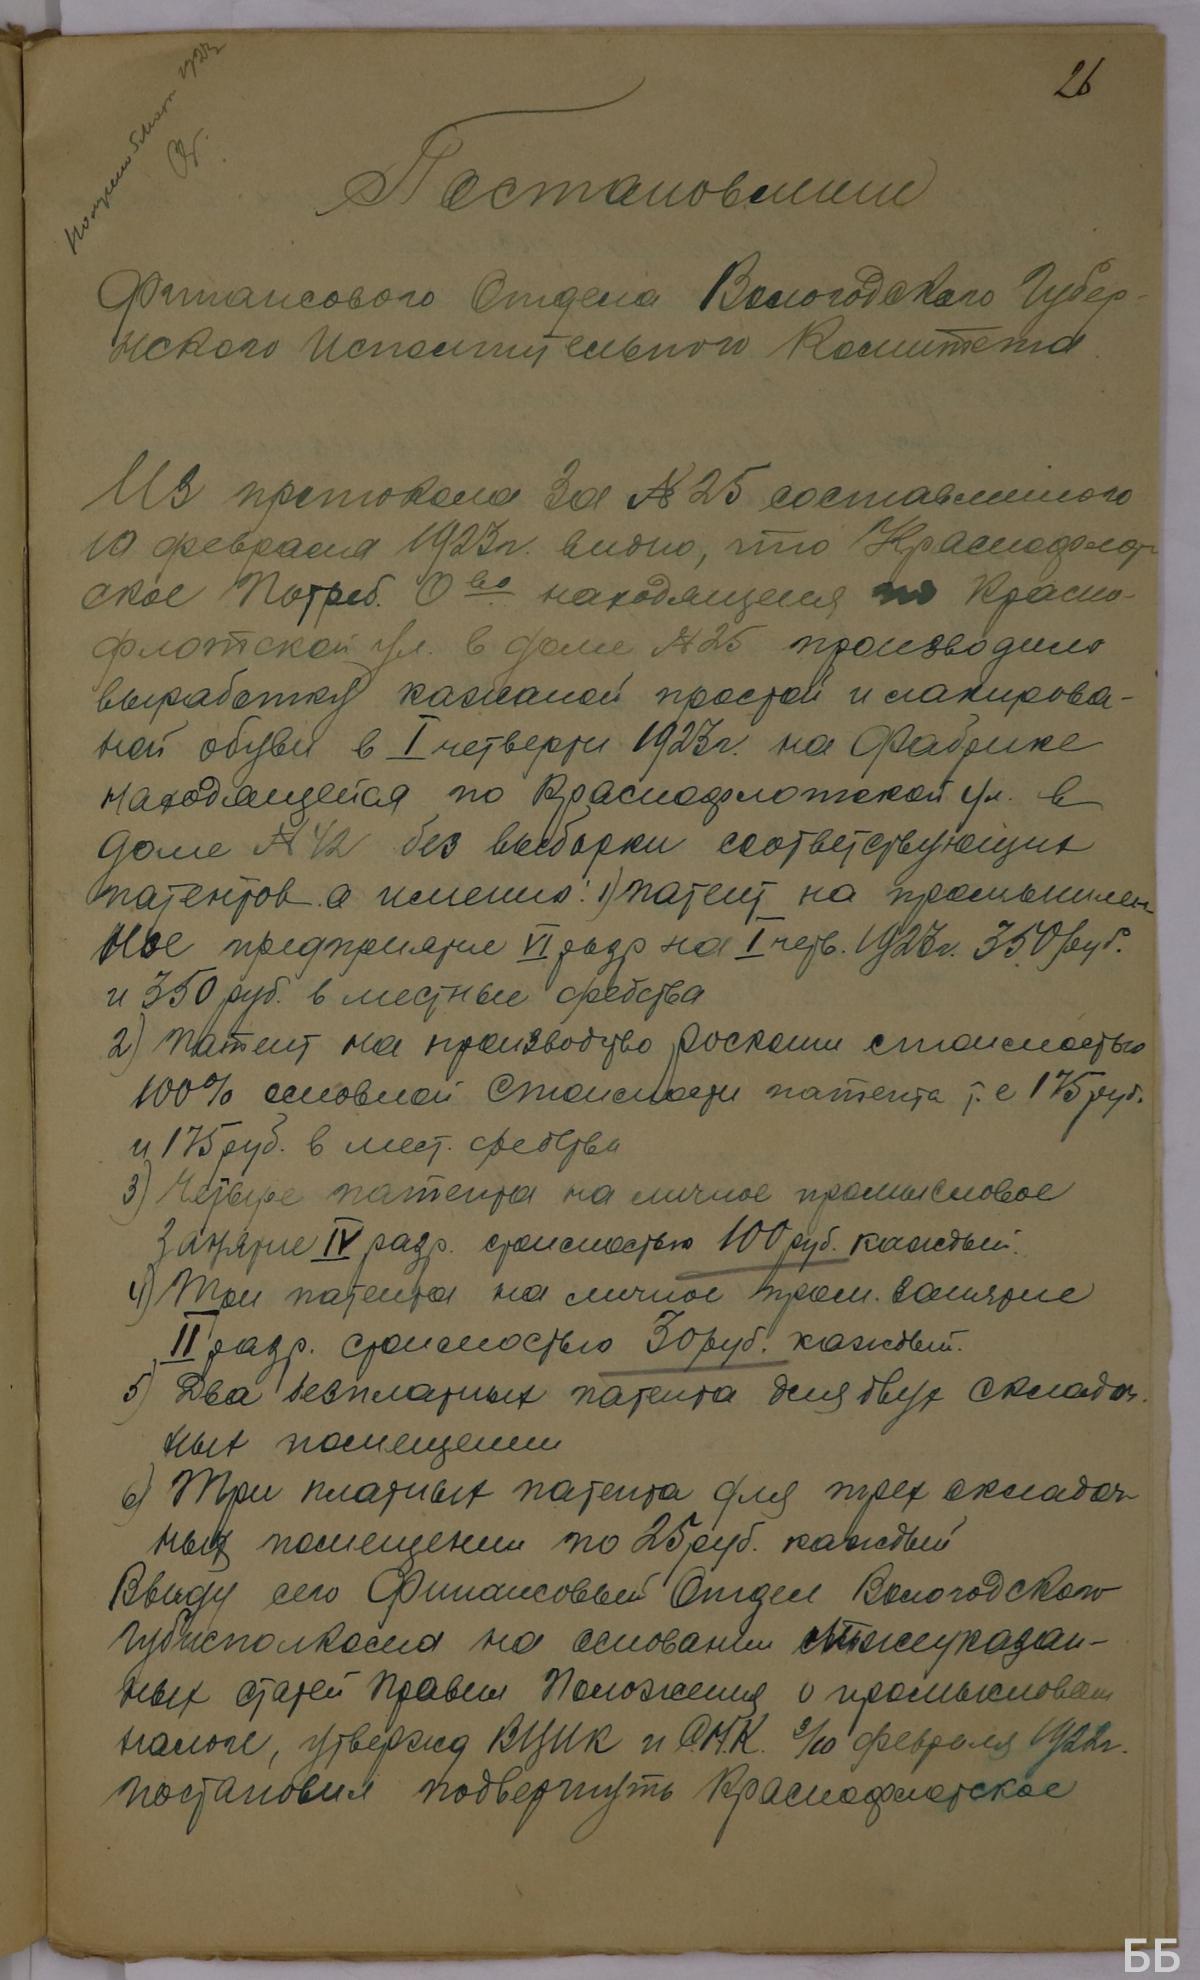 26
1923
Постановление
Финансового Отдела Вологодского Губер-
нского Исполнительного Комитета
Из протокола за № 25 составленного
10 февраля 1923 г. видно, что Краснофлот-
ское Потреб. О-во находящееся по Красно-
флотской ул. в доме № 25 производило
выработку кожаной простой и лакирова-
ной обуви в I четверти 1923 г. на Фабрике
находящейся по Краснофлотской ул. в
доме № 42 без выборки соответствующих
патентов а именно: 1) патент на промышлен-
ное предприятие VI разр на I четв. 1923 г. 350 руб.
и 350 руб. в местные средства
2) Патент на производство роскоши стоимостью
100% основной стоимости патента т.е 175 руб.
и 175 руб. в мест. средства
3) Четыре патента на личное промысловое
занятие IV разр. стоимостью 100 руб. каждый.
4) Три патента на личное пром. занятие
II разр. стоимостью 30 руб. каждый.
5) Два безплатных патента для двух складоч-
ных помещении
6) Три платных патента для трех складоч-
ных помещении по 25 руб. каждый
Ввиду сего Финансовый Отдел Вологодского
Губисполкома на основании нижеуказан-
ных статей Правил Положения о промысловом
налоге, утвержд ВЦИК и С.Н.К. 2/10 февраля 1922 г.
постановил подвергнуть Краснофлотское
ББ